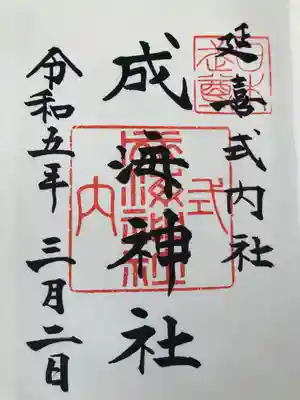 延喜式内社
成海神社
式内
成海神社
令和五年 三月二日